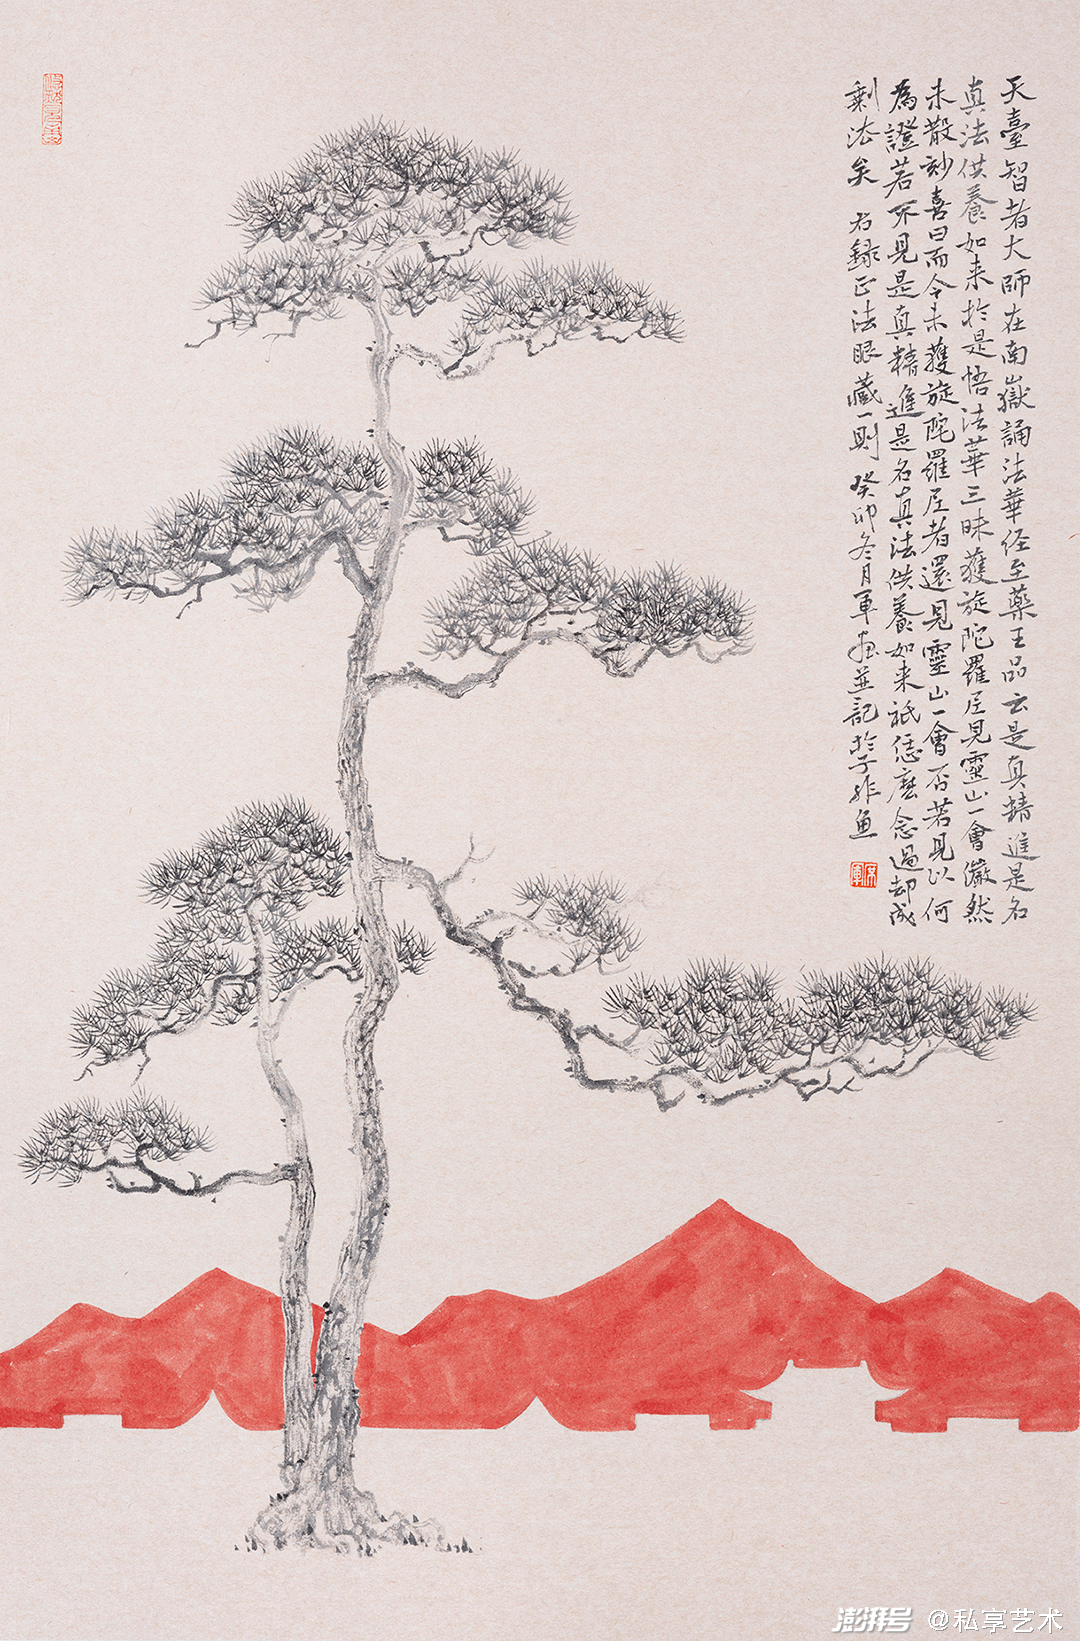 天臺智者大師在南嶽誦法華经至藥王品云是真精進是名
真法供養如来於是悟法華三昧獲旋陀羅尼見靈山一會儼然
未散妙喜曰而今未獲旋陀羅尼者還見靈山一會否若見以何
為證若不見是真精進是名真法供養如来祇恁麽念過却成
剩法矣 右録正法眼藏一則 癸卯冬月軍畫並記於子非魚
澎湃号 @私享艺术